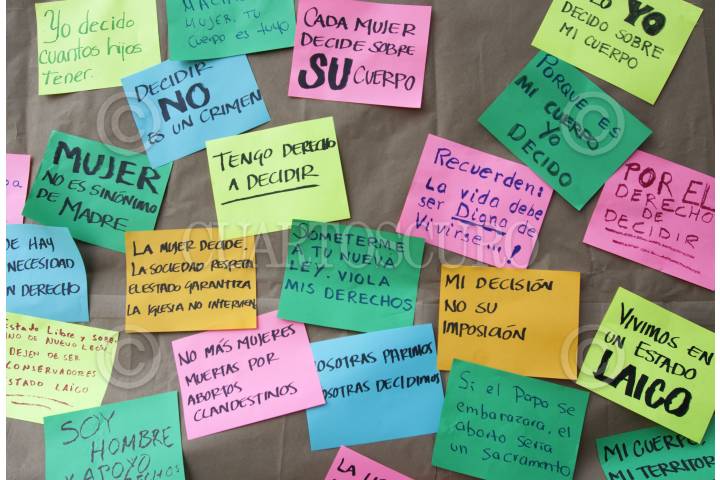 Yo decido
cuantos hijos
tener.
MUJER, TU
CUERPO ES tuyo
CADA MUJER
DECIDE SOBRE
SU CUERPO
YO
DECIDO SOBRE
MI CUERPO
DECIDIR
NO
ES UN CRIMEN
PORQUE ES
MI CUERPO
YO
DECIDO
TENGO DERECHO
A DECIDIR
MUJER
NO ES SINÓNIMO
DE MADRE
Recuerden:
La vida debe
ser Digna de
Vivirse...!
POR EL
DERECHO
DE
DECIDIR
DE HAY
NECESIDAD
UN DERECHO
LA MUJER DECIDE.
LA SOCIEDAD RESPETA
EL ESTADO GARANTIZA
LA IGLESIA NO INTERVIENE
SOMETERME
A TU NUEVA
LEY, VIOLA
MIS DERECHOS
CUARTOSCURO
MI DECISIÓN
NO SU
IMPOSICIÓN
VIVIMOS EN
UN ESTADO
LAICO
Estado Libre y Sobe-
rano DE NUEVO LEÓN
DEJEN DE SER
CONSERVADORES
ESTADO LAICO
NO MÁS MUJERES
MUERTAS POR
ABORTOS
CLANDESTINOS
NOSOTRAS PARIMOS
NOSOTRAS DECIDIMOS
Si el Papa se
embarazara, el
aborto sería
un Sacramento
SOY
HOMBRE
Y APOYO
MI CUERPO
MI TERRITOR